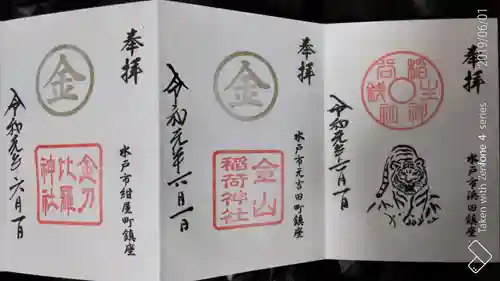 奉拝
水戸市浜田町鎮座
稲生神
岩銭神
令和元年六月一日
奉拝
水戸市元吉田町鎮座
金
金山
稲荷神社
令和元年六月一日
奉拝
水戸市紺屋町鎮座
金
金刀
比羅
神社
令和元年六月一日
2019/06/01
Taken with Zenfone 4 series